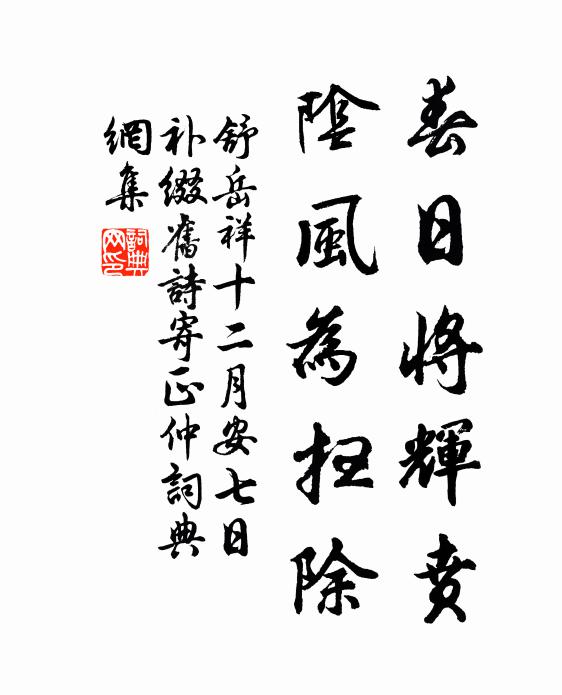 春日將輝賁
陰風為扫除
舒岳祥十二月安七日
补缀舊詩寄正仲詞典
網集
詞典
网印